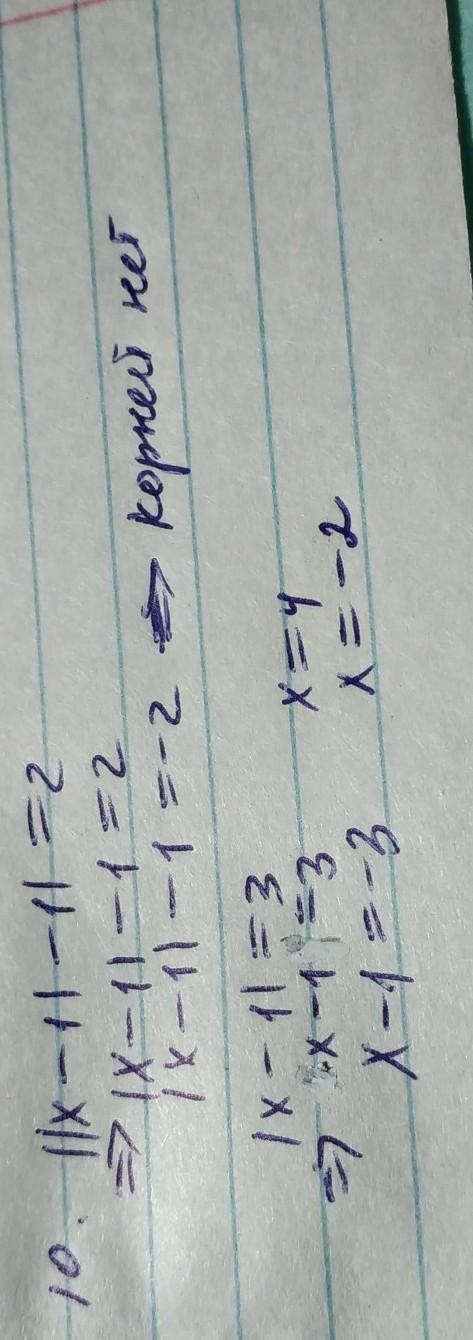 10. ||x-1|-1|=2
⇒ |x-1|-1=2
|x-1|-1=-2 ⇒ корней нет
|x-1|=3
⇒ x-1=3 x=4
x-1=-3 x=-2